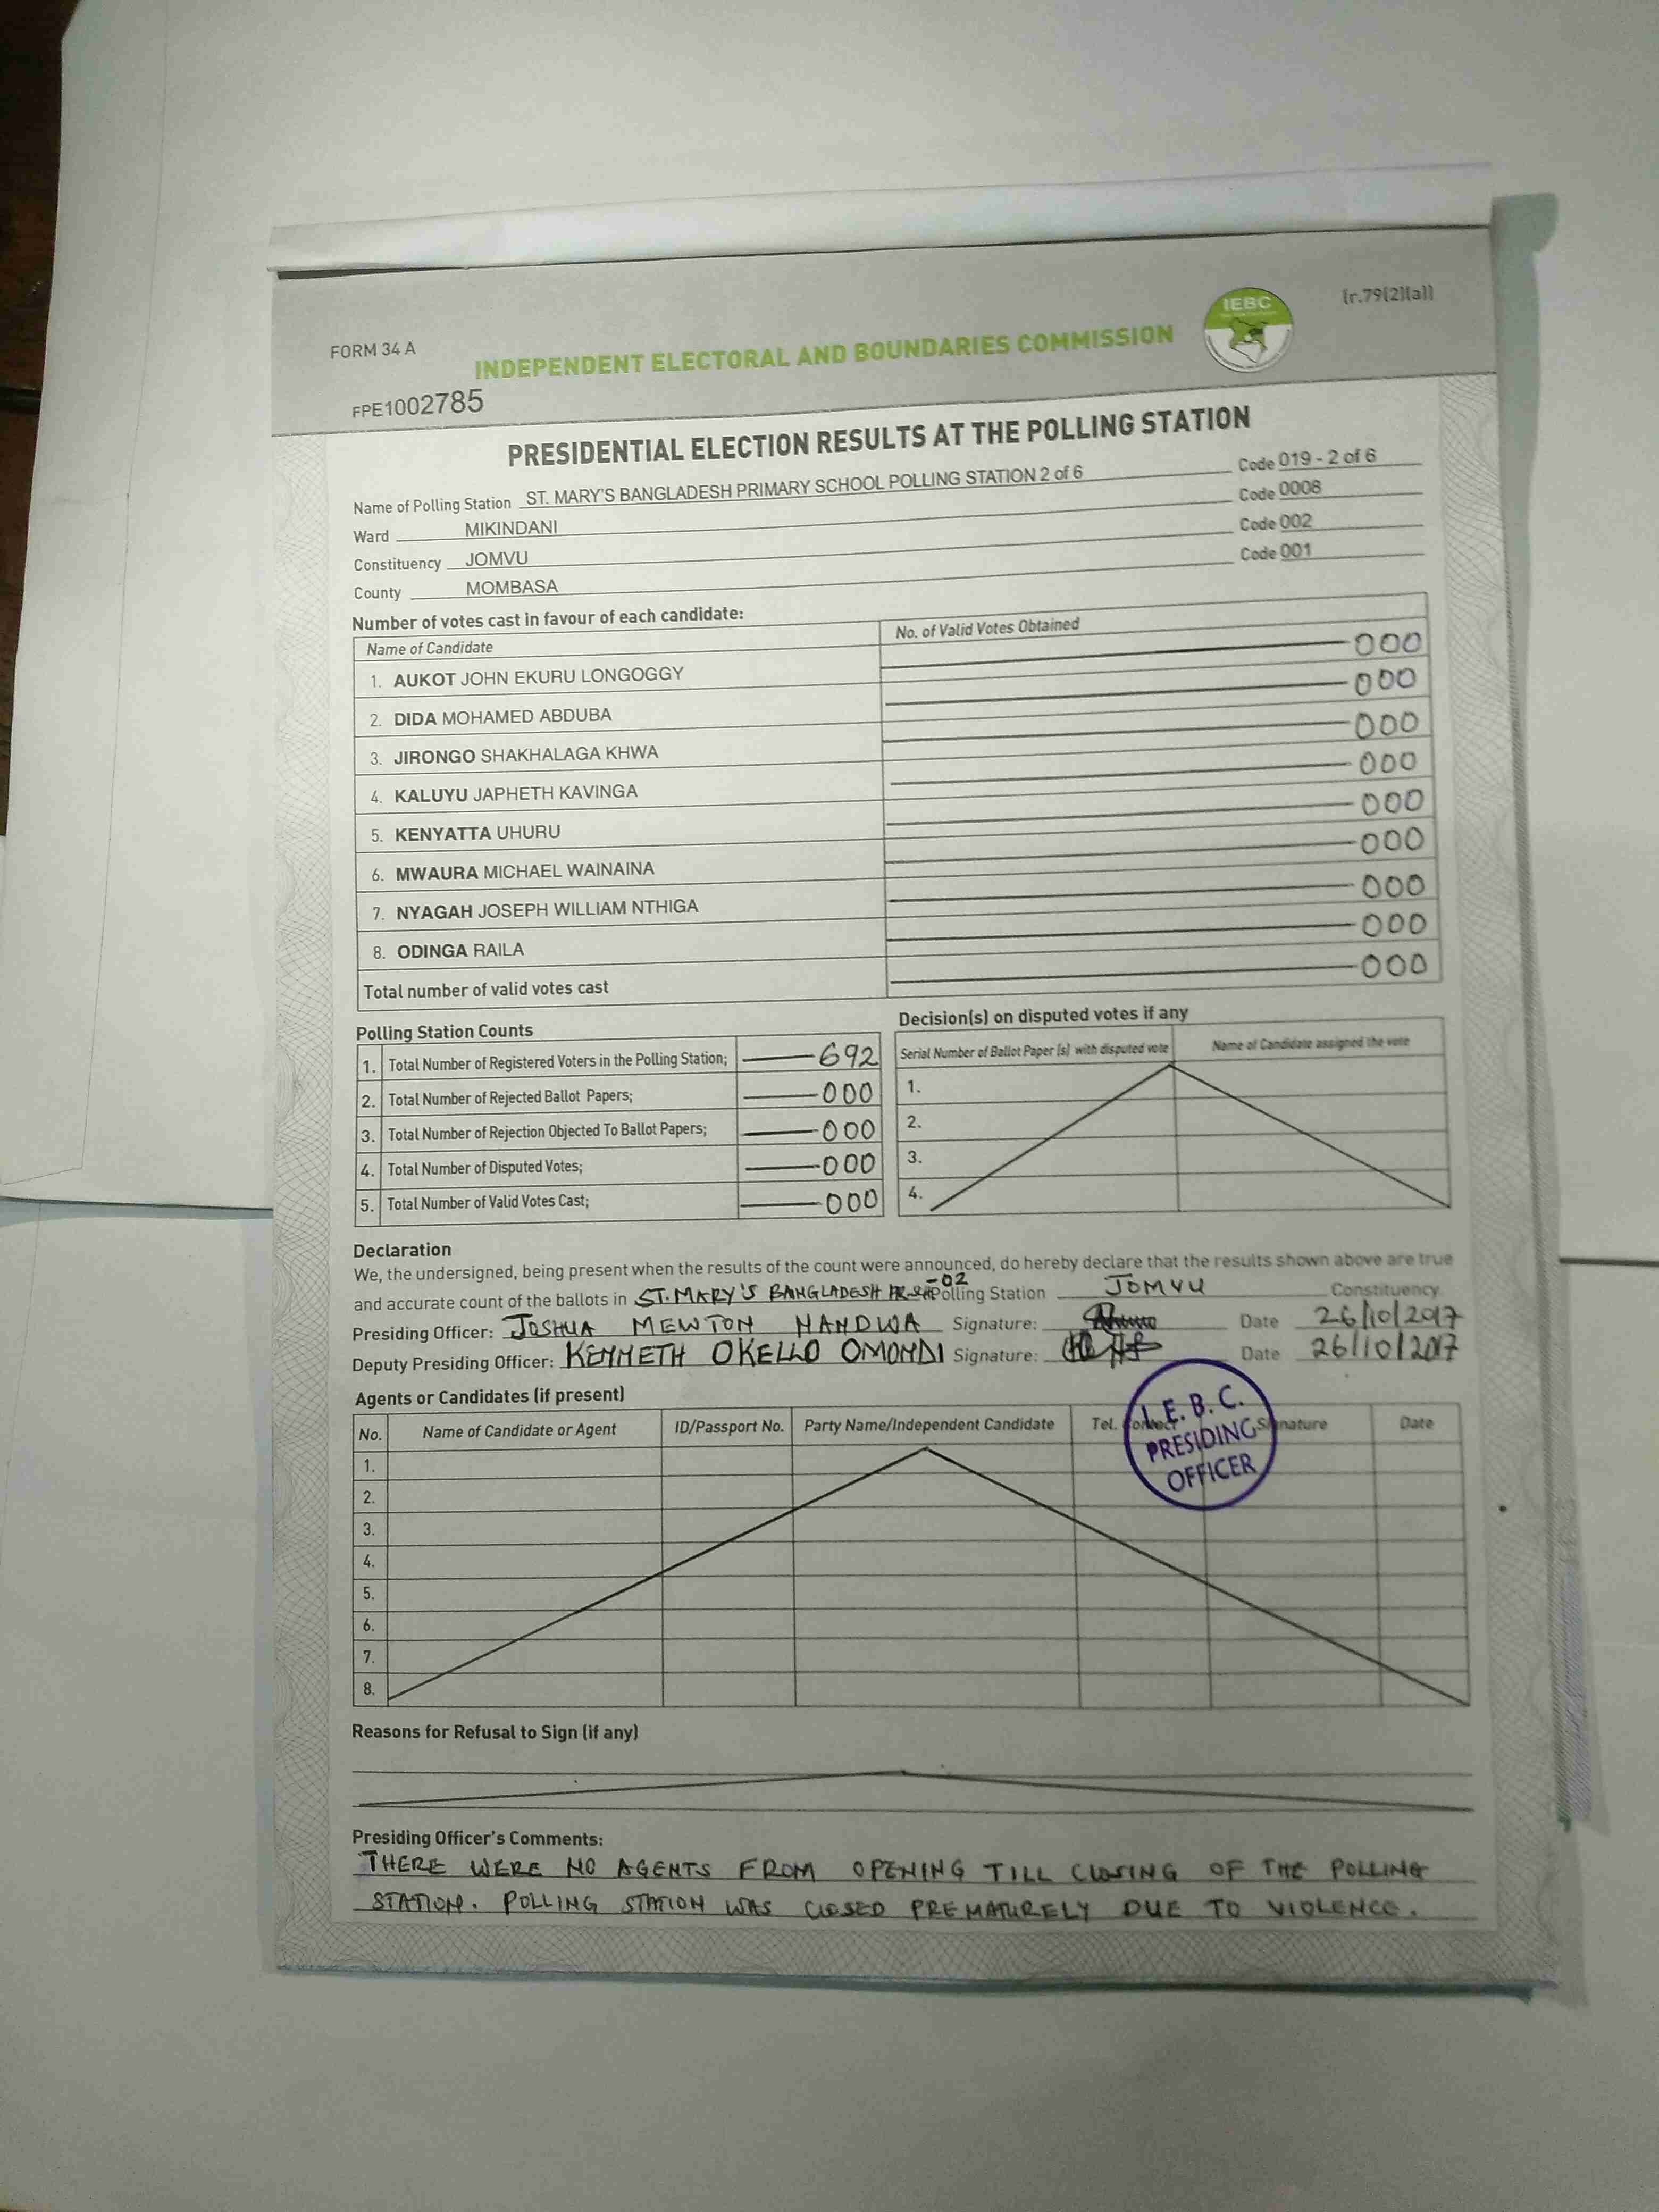 (r.79(2)(a))
IEBC
FORM 34 A
INDEPENDENT ELECTORAL AND BOUNDARIES COMMISSION
FPE1002785
PRESIDENTIAL ELECTION RESULTS AT THE POLLING STATION
Name of Polling Station ST. MARY'S BANGLADESH PRIMARY SCHOOL POLLING STATION 2 of 6 Code 019 - 2 of 6
Ward MIKINDANI Code 0008
Constituency JOMVU Code 002
County MOMBASA Code 001
Number of votes cast in favour of each candidate:
Name of Candidate No. of Valid Votes Obtained
1. AUKOT JOHN EKURU LONGOGGY 000
2. DIDA MOHAMED ABDUBA 000
3. JIRONGO SHAKHALAGA KHWA 000
4. KALUYU JAPHETH KAVINGA 000
5. KENYATTA UHURU 000
6. MWAURA MICHAEL WAINAINA 000
7. NYAGAH JOSEPH WILLIAM NTHIGA 000
8. ODINGA RAILA 000
Total number of valid votes cast 000
Polling Station Counts
1. Total Number of Registered Voters in the Polling Station; 692
2. Total Number of Rejected Ballot Papers; 000
3. Total Number of Rejection Objected To Ballot Papers; 000
4. Total Number of Disputed Votes; 000
5. Total Number of Valid Votes Cast; 000
Decision(s) on disputed votes if any
Serial Number of Ballot Paper (s) with disputed vote Name of Candidate assigned the vote
1.
2.
3.
4.
Declaration
We, the undersigned, being present when the results of the count were announced, do hereby declare that the results shown above are true
and accurate count of the ballots in ST. MARY'S BANGLADESH -02 Polling Station JOMVU Constituency
Presiding Officer: JOSHUA NEWTON NANDWA Signature: Date 26/10/2017
Deputy Presiding Officer: KENNETH OKELLO OMONDI Signature: Date 26/10/2017
Agents or Candidates (if present)
No. Name of Candidate or Agent ID/Passport No. Party Name/Independent Candidate Tel. Contact Signature Date
1.
2.
3.
4.
5.
6.
7.
8.
I.E.B.C.
PRESIDING
OFFICER
Reasons for Refusal to Sign (if any)
Presiding Officer's Comments:
THERE WERE NO AGENTS FROM OPENING TILL CLOSING OF THE POLLING
STATION. POLLING STATION WAS CLOSED PREMATURELY DUE TO VIOLENCE.